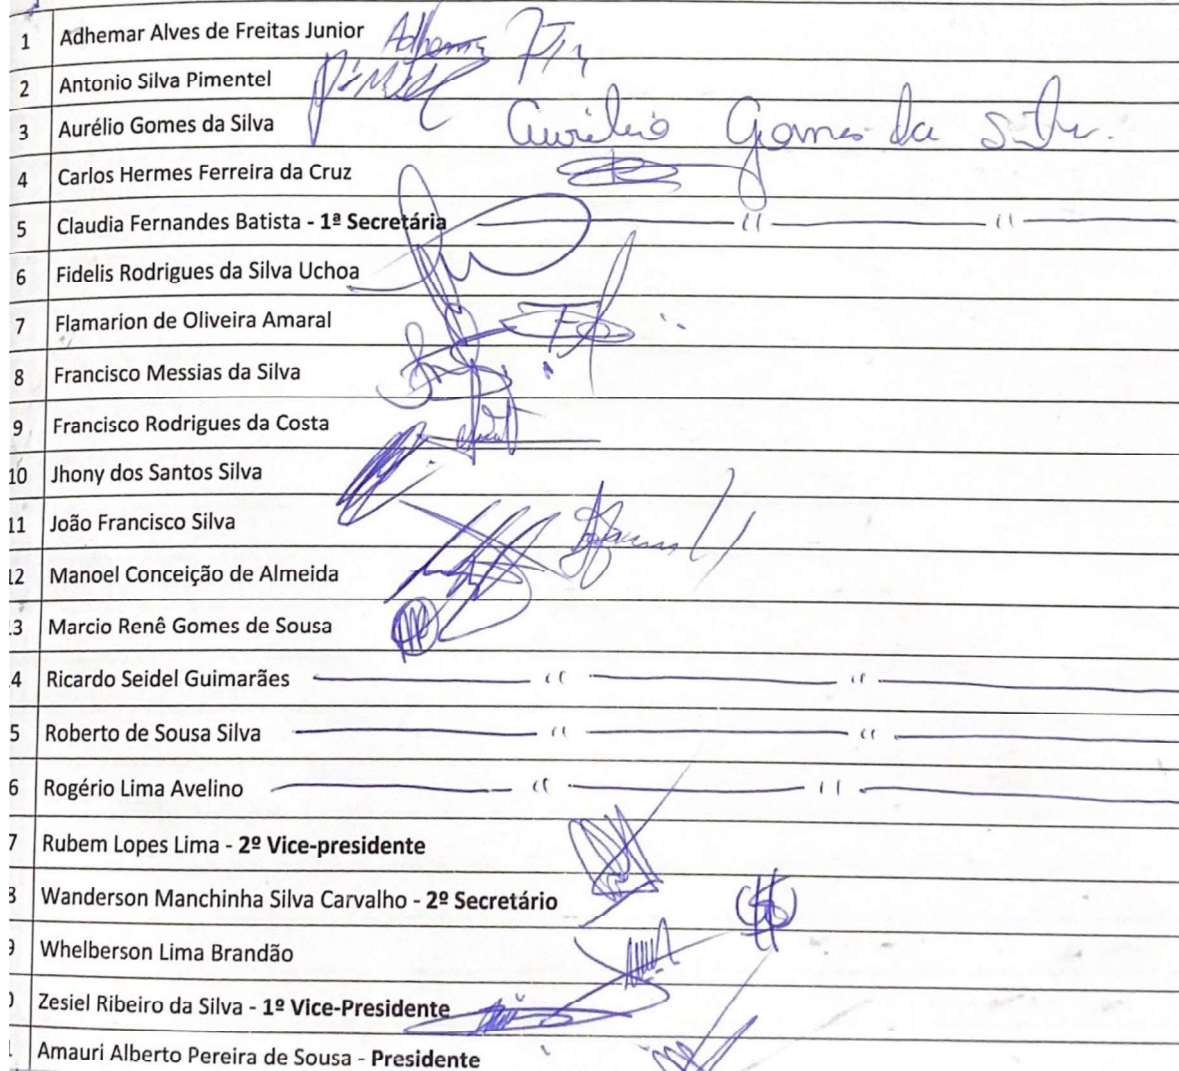 1 Adhemar Alves de Freitas Junior Adhemar
2 Antonio Silva Pimentel
3 Aurélio Gomes da Silva Aurélio Gomes da Silva.
4 Carlos Hermes Ferreira da Cruz
5 Claudia Fernandes Batista - 1ª Secretária
6 Fidelis Rodrigues da Silva Uchoa
7 Flamarion de Oliveira Amaral
8 Francisco Messias da Silva
9 Francisco Rodrigues da Costa
10 Jhony dos Santos Silva
11 João Francisco Silva
12 Manoel Conceição de Almeida
3 Marcio Renê Gomes de Sousa
4 Ricardo Seidel Guimarães
5 Roberto de Sousa Silva
6 Rogério Lima Avelino
7 Rubem Lopes Lima - 2º Vice-presidente
Wanderson Manchinha Silva Carvalho - 2º Secretário
Whelberson Lima Brandão
Zesiel Ribeiro da Silva - 1º Vice-Presidente
Amauri Alberto Pereira de Sousa - Presidente